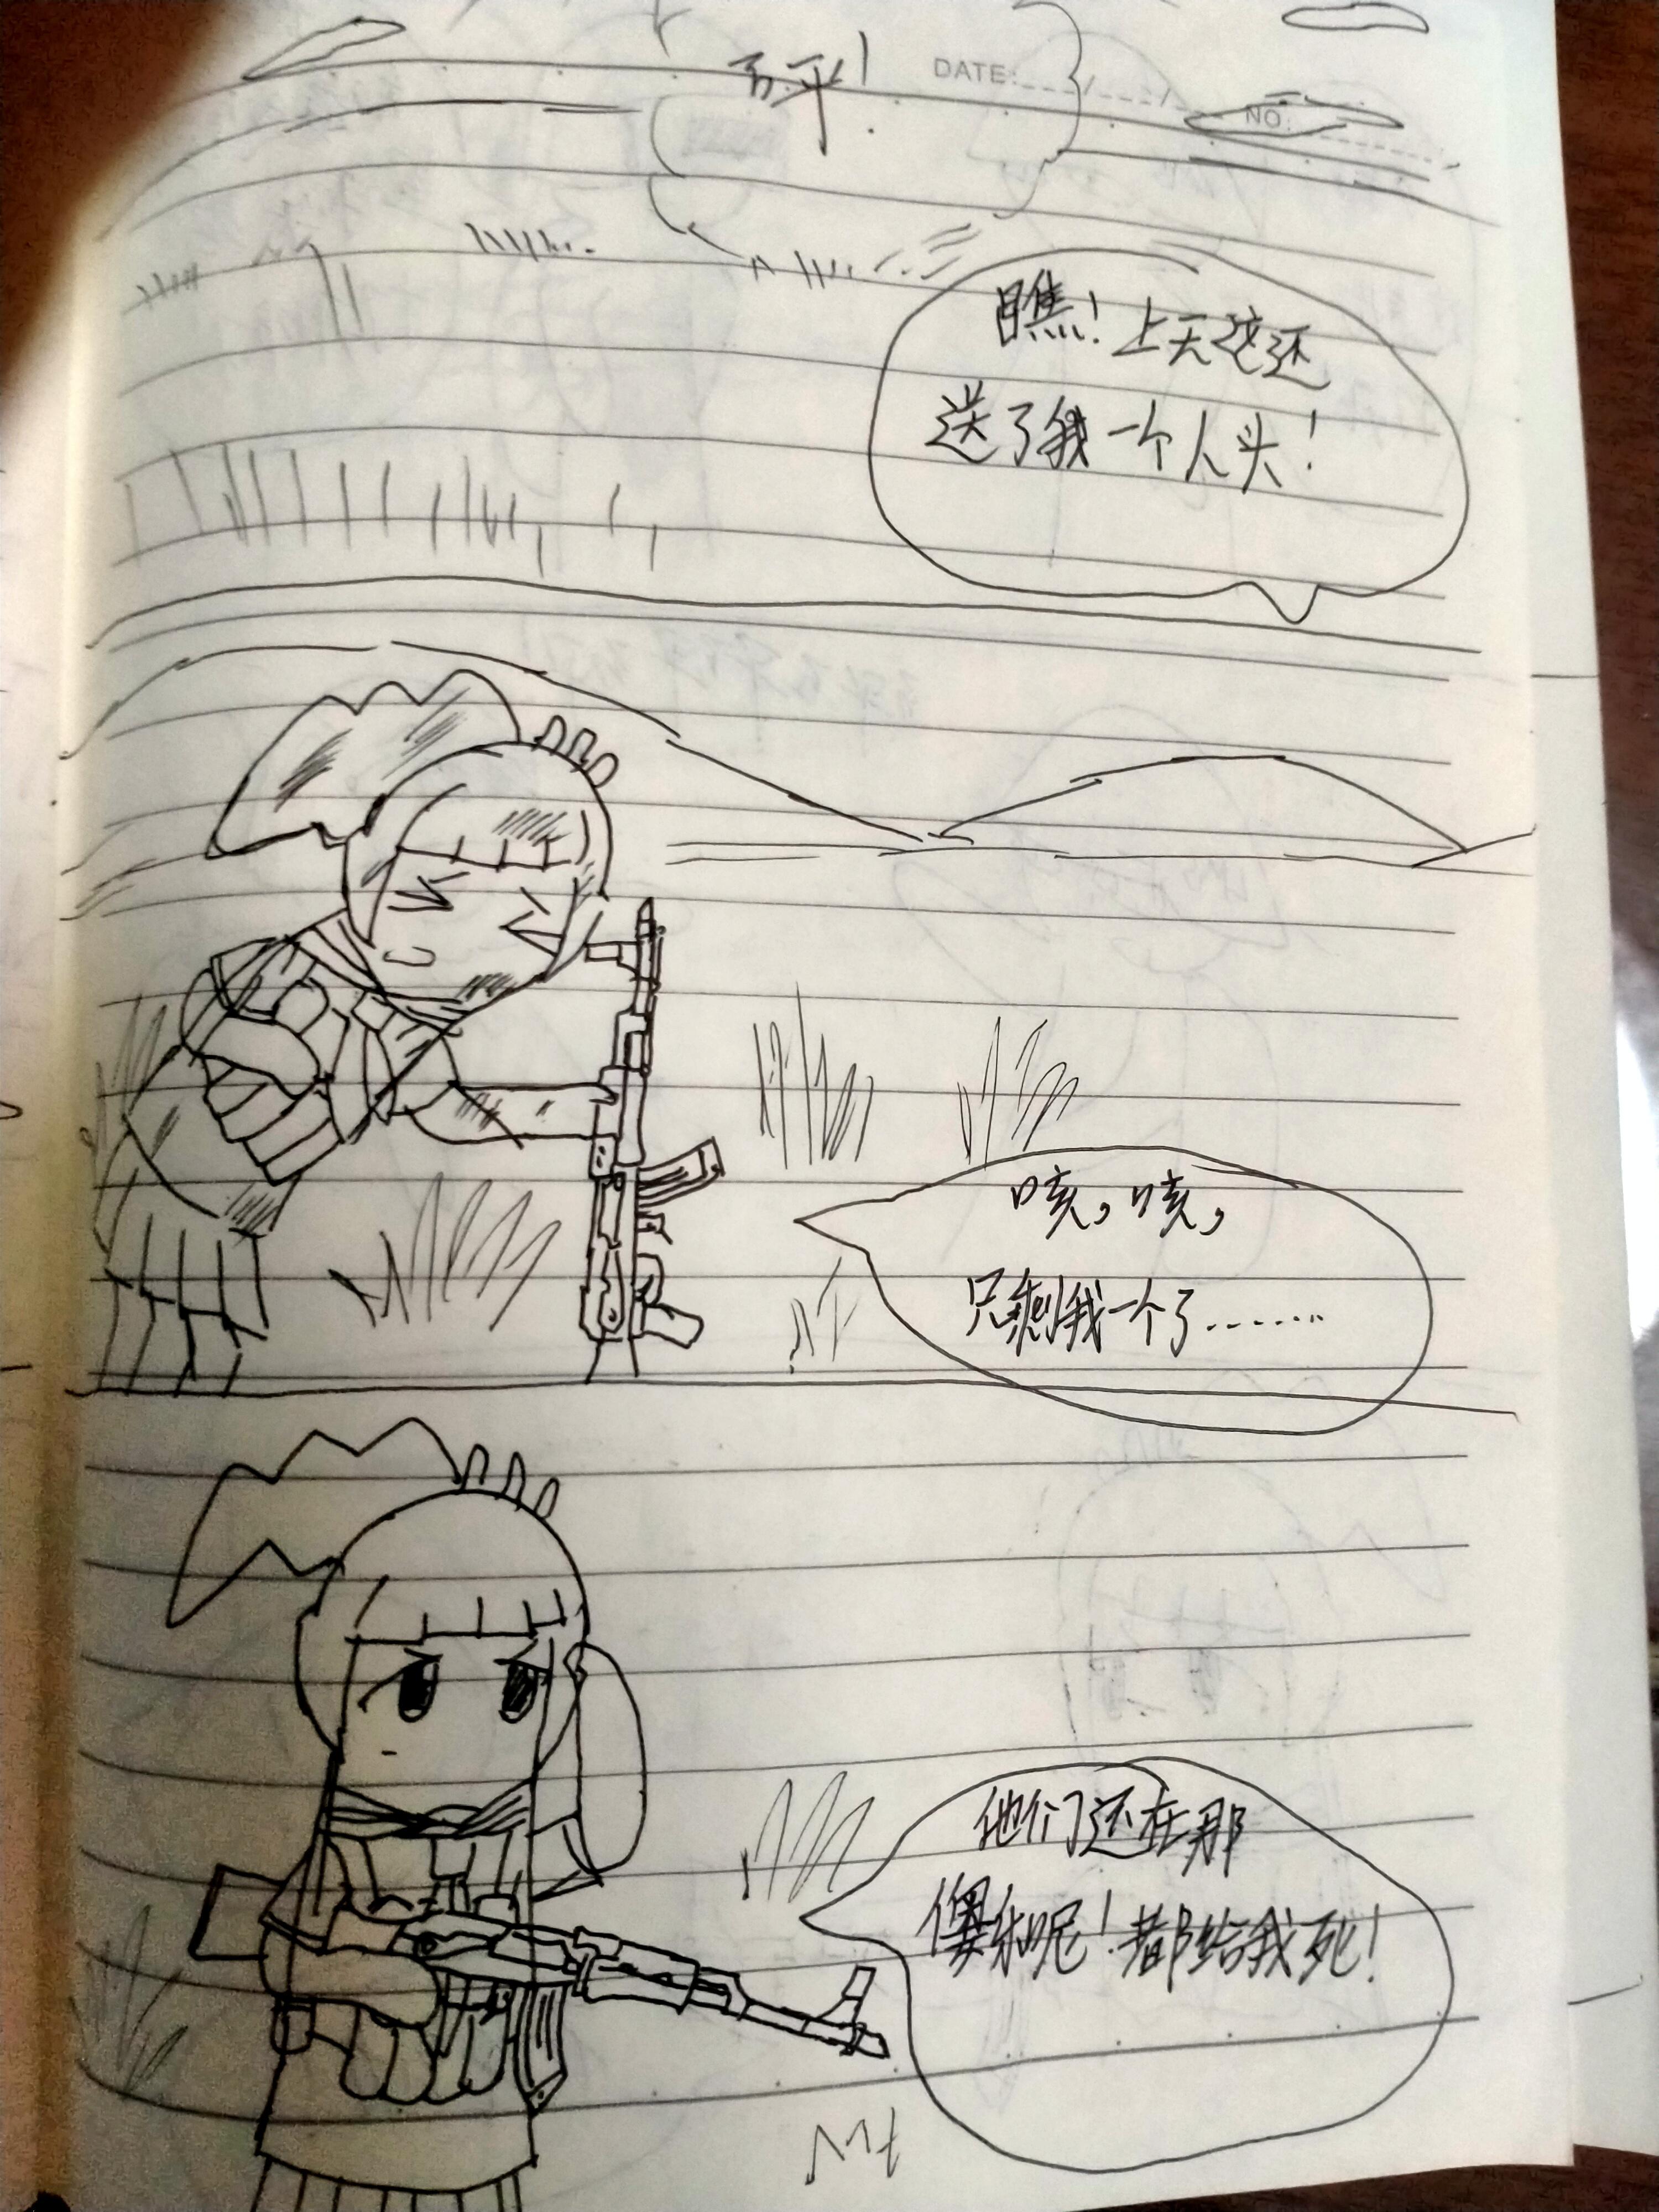 DATE:
NO:
瞧！上天这还
送了我一个人头！
咳，咳，
只剩我一个了........
他们还在那
傻乐呢！都给我死！